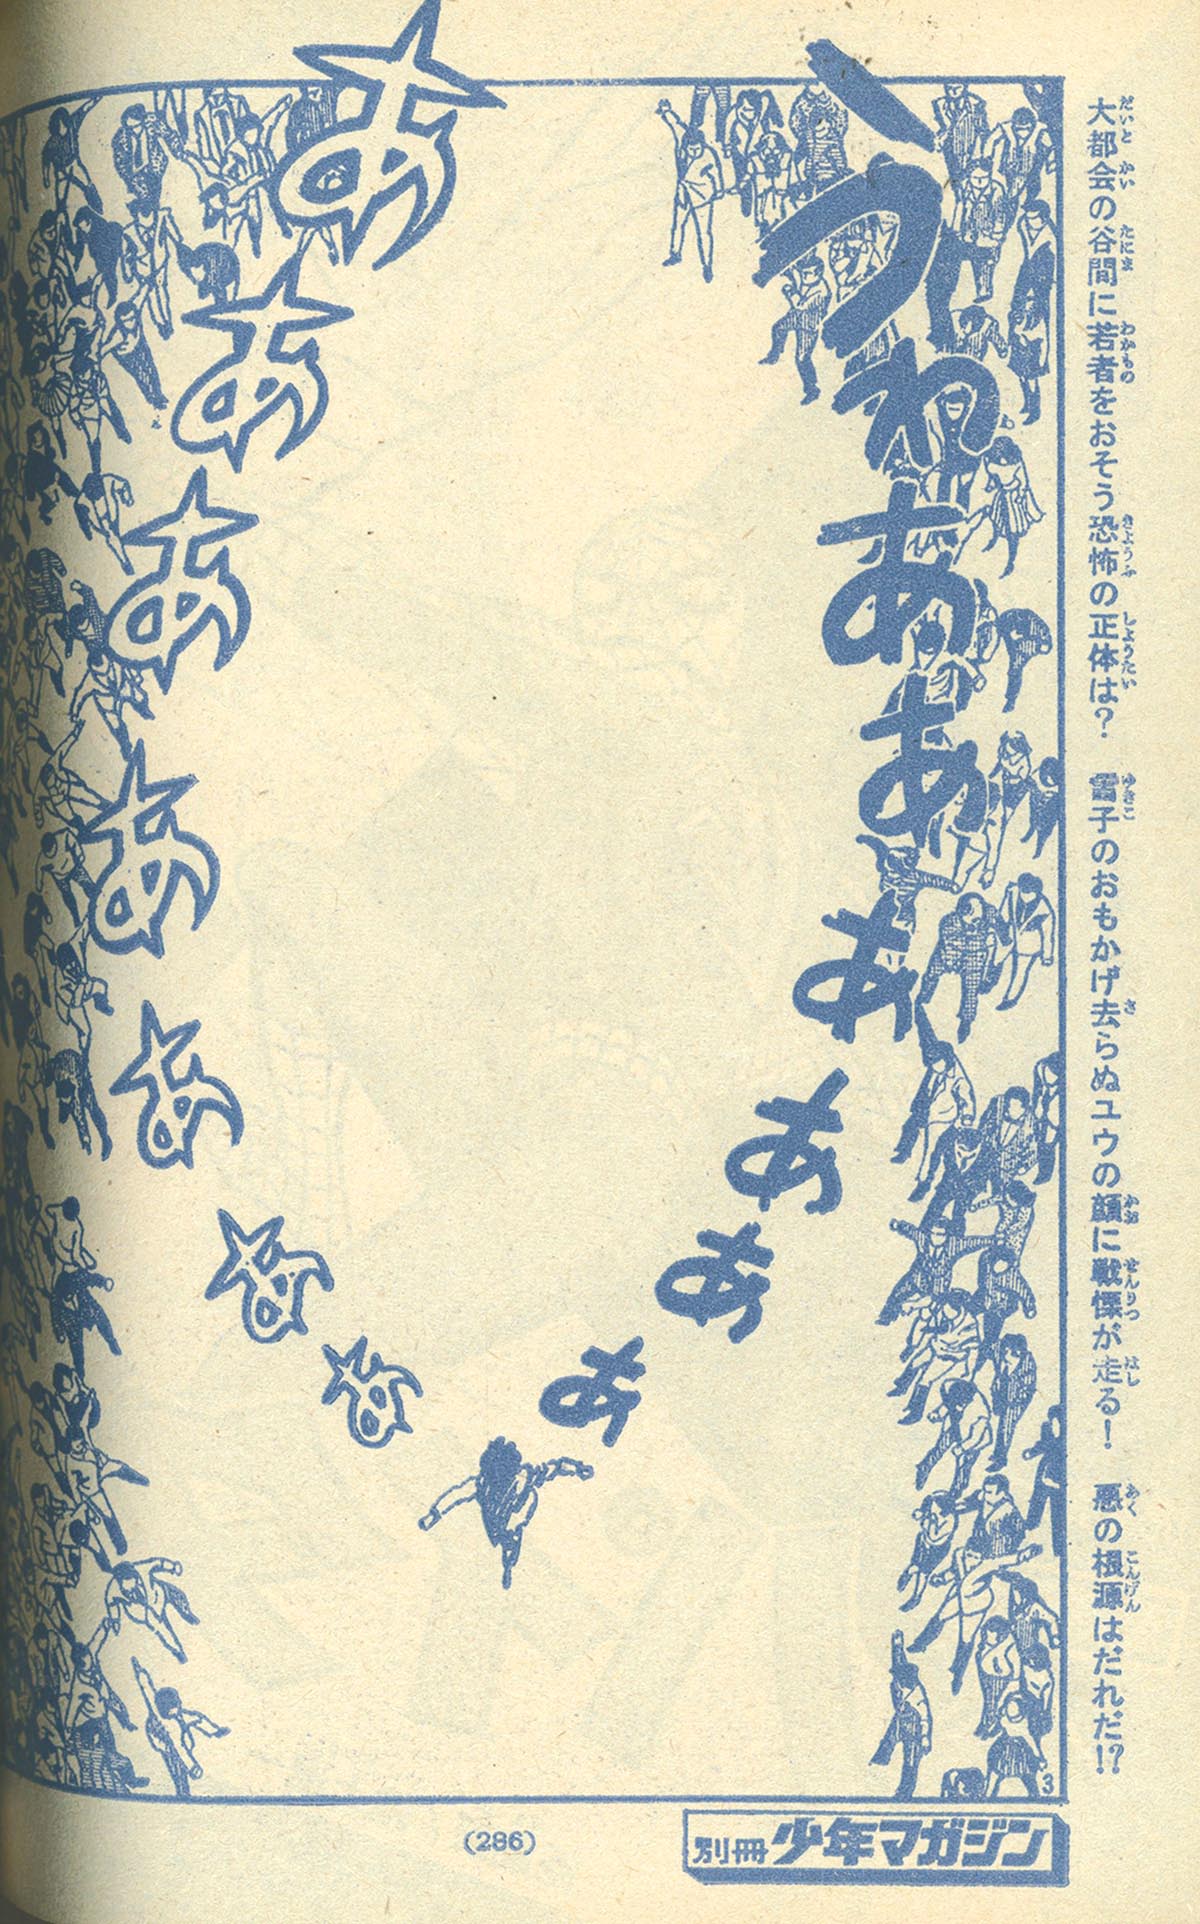 大都会の谷間に若者をおそう恐怖の正体は? 雪子のおもかげ去らぬユウの顔に戦慄が走る! 悪の根源はだれだ!?
うわああああああ
あああああああ
3
別冊 少年マガジン
(286)